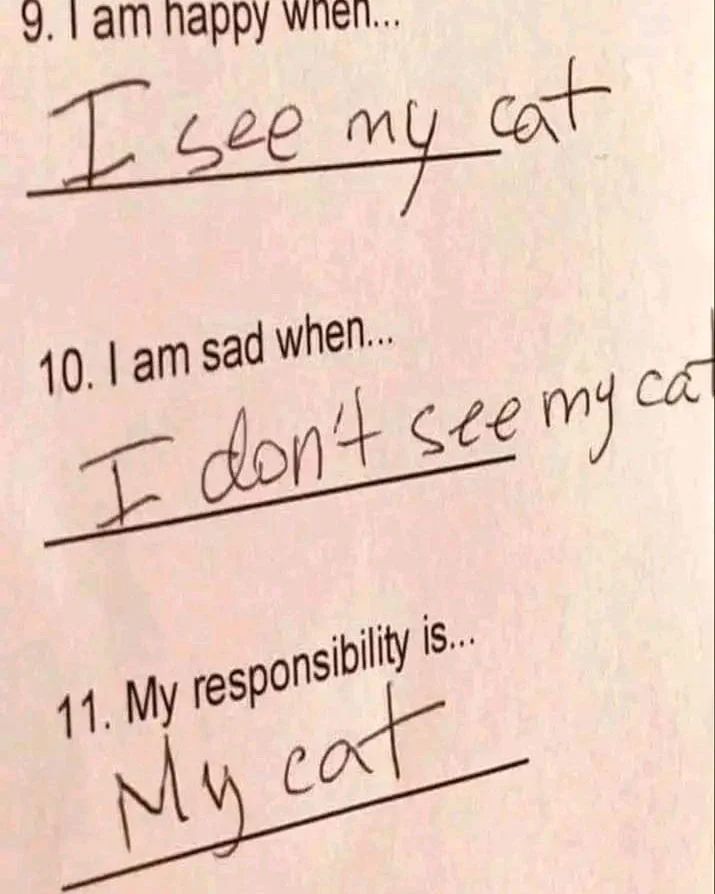 9. I am happy when...
I see my cat
10. I am sad when...
I don't see my cat
11. My responsibility is...
My cat